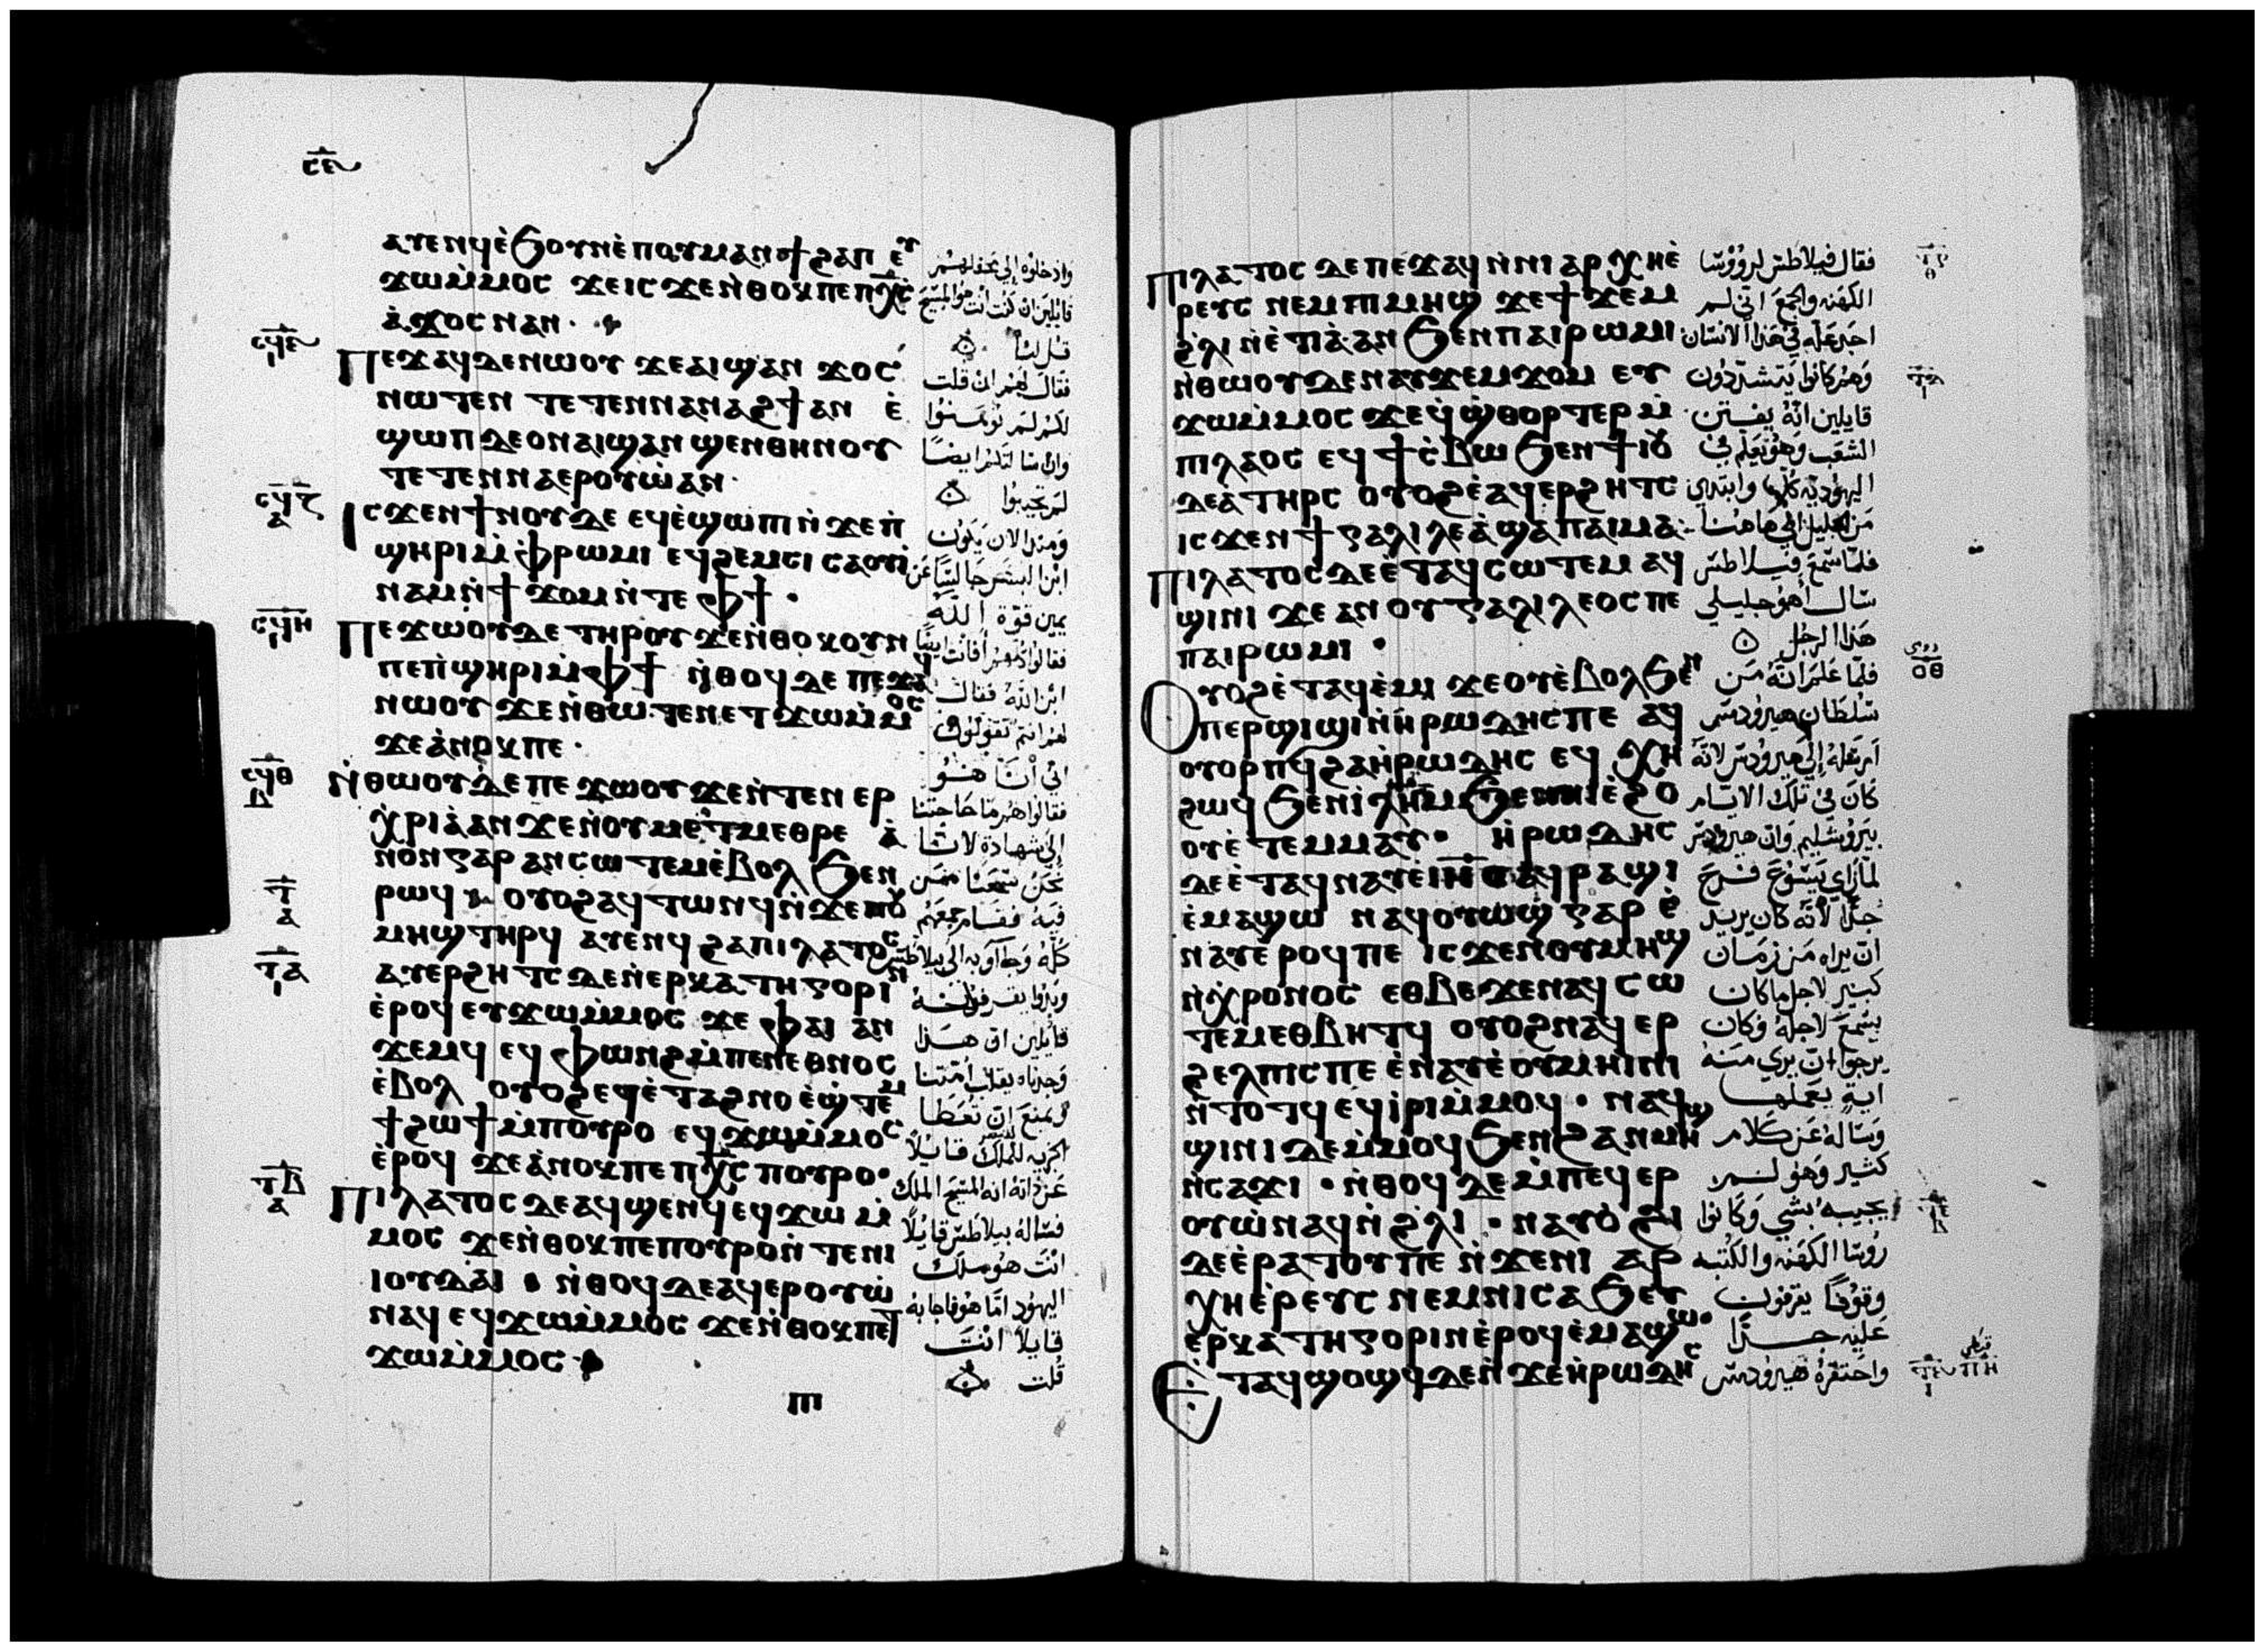 ⲥⲉ
ⲁⲩⲉⲛϥ ⲉ̀ϧⲟⲩⲛ ⲉ̀ⲡⲟⲩⲙⲁⲛϯϩⲁⲡ ⲉⲩ
ϫⲱⲙ̀ⲙⲟⲥ ϫⲉ ⲓⲥϫⲉ ⲛ̀ⲑⲟⲕ ⲡⲉ ⲡⲭ̅ⲥ̅
ⲁ̀ϫⲟⲥ ⲛⲁⲛ ·
ⲡⲉϫⲁϥ ⲇⲉ ⲛⲱⲟⲩ ϫⲉ ⲁⲓϣⲁⲛ ϫⲟⲥ
ⲛⲱⲧⲉⲛ ⲧⲉⲧⲉⲛⲛⲁⲛⲁϩϯ ⲁⲛ ⲉ̀
ϣⲱⲡ ⲇⲉ ⲟⲛ ⲁⲓϣⲁⲛϣⲉⲛ ⲑⲏⲛⲟⲩ
ⲧⲉⲧⲉⲛⲛⲁⲉⲣⲟⲩⲱ̀ ⲁⲛ ·
ⲓⲥϫⲉⲛ ϯⲛⲟⲩ ⲇⲉ ⲉϥⲉ̀ϣⲱⲡⲓ ⲛ̀ϫⲉ ⲡ̀
ϣⲏⲣⲓ ⲙ̀ⲫⲣⲱⲙⲓ ⲉϥϩⲉⲙⲥⲓ ⲥⲁⲟⲩⲓ̀
ⲛⲁⲙ ⲛ̀ϯϫⲟⲙ ⲛ̀ⲧⲉ ⲫϯ ·
ⲡⲉϫⲱⲟⲩ ⲇⲉ ⲧⲏⲣⲟⲩ ϫⲉ ⲛ̀ⲑⲟⲕ ⲟⲩⲛ
ⲡⲉ ⲡ̀ϣⲏⲣⲓ ⲙ̀ⲫϯ ⲛ̀ⲑⲟϥ ⲇⲉ ⲡⲉϫⲁϥ
ⲛⲱⲟⲩ ϫⲉ ⲛ̀ⲑⲱⲧⲉⲛ ⲉⲧϫⲱⲙ̀ⲙⲟⲥ
ϫⲉ ⲁ̀ⲛⲟⲕ ⲡⲉ ·
ⲛ̀ⲑⲱⲟⲩ ⲇⲉ ⲡⲉϫⲱⲟⲩ ϫⲉ ⲛ̀ⲧⲉⲛ ⲉⲣ
ⲭ̀ⲣⲓⲁ̀ ⲁⲛ ϫⲉ ⲛ̀ⲟⲩⲙⲉⲧⲙⲉⲑⲣⲉ ⲁ̀
ⲛⲟⲛ ⲅⲁⲣ ⲁⲛⲥⲱⲧⲉⲙ ⲉ̀ⲃⲟⲗ ϧⲉⲛ
ⲣⲱϥ ⲟⲩⲟϩ ⲁϥⲧⲱⲛϥ ⲛ̀ϫⲉ ⲡⲟⲩ
ⲙⲏϣ ⲧⲏⲣϥ ⲁⲩⲉⲛϥ ϩⲁ ⲡⲓⲗⲁⲧⲟⲥ
ⲁⲩⲉⲣϩⲏⲧⲥ ⲇⲉ ⲛ̀ⲉⲣⲕⲁⲧⲏⲅⲟⲣⲓⲛ
ⲉ̀ⲣⲟϥ ⲉⲩϫⲱⲙ̀ⲙⲟⲥ ϫⲉ ⲫⲁⲓ ⲁⲛ
ϫⲉⲙϥ ⲉϥⲫⲱⲛϩ ⲙ̀ⲡⲉⲛⲉⲑⲛⲟⲥ
ⲉ̀ⲃⲟⲗ ⲟⲩⲟϩ ⲉϥⲉ̀ⲧⲁϩⲛⲟ ⲉ̀ϣⲧⲉⲙ
ϯϩⲱϯ ⲙ̀ⲡⲟⲩⲣⲟ ⲉϥϫⲱⲙ̀ⲙⲟⲥ
ⲉ̀ⲣⲟϥ ϫⲉ ⲁ̀ⲛⲟⲕ ⲡⲉ ⲡⲭ̅ⲥ̅ ⲡⲟⲩⲣⲟ ·
ⲡⲓⲗⲁⲧⲟⲥ ⲇⲉ ⲁϥϣⲉⲛϥ ⲉϥϫⲱ ⲙ̀
ⲙⲟⲥ ϫⲉ ⲛ̀ⲑⲟⲕ ⲡⲉ ⲡⲟⲩⲣⲟ ⲛ̀ⲧⲉ ⲛⲓ
ⲓⲟⲩⲇⲁⲓ · ⲛ̀ⲑⲟϥ ⲇⲉ ⲁϥⲉⲣⲟⲩⲱ̀
ⲛⲁϥ ⲉϥϫⲱⲙ̀ⲙⲟⲥ ϫⲉ ⲛ̀ⲑⲟⲕ ⲡⲉⲧ
ϫⲱⲙ̀ⲙⲟⲥ ·
وادخلوه إلى محفلهم
قايلين ان كنت انت هو المسيح
قل لنا
فقال لهم ان قلت
لكم لم تومنوا
وان سالتكم ايضًا
لم تجيبوا
ومنذ الان يكون
ابن البشر جالسًا عن
يمين قوة الله
فقالوا كلهم أفانت ايضًا
ابن الله فقال
لهم انتم تقولون
اني أنا هو
فقالوا هم ما حاجتنا
إلى شهادة لاننا
نحن سمعنا من
فيه فقام جمعهم
كله وجآوا به الى بيلاطس
وبدوا يقرفونه
قايلين ان هذا
وجدناه يقلب أمتنا
ويمنع ان تعطا
الجزيه للملك قايلًا
عن ذاته انه المسيح الملك
فساله بيلاطس قايلًا
انت هو ملك
اليهود امّا هو فاجابه
قايلاً انتَ
قلت
ⲡⲓⲗⲁⲧⲟⲥ ⲇⲉ ⲡⲉϫⲁϥ ⲛ̀ⲛⲓⲁⲣⲭⲏⲉ̀
ⲣⲉⲩⲥ ⲛⲉⲙ ⲡⲓⲙⲏϣ ϫⲉ ϯϫⲉⲙ
ϩ̀ⲗⲓ ⲛ̀ⲉ̀ⲧⲓⲁ̀ ⲁⲛ ϧⲉⲛ ⲡⲁⲓⲣⲱⲙⲓ
ⲛ̀ⲑⲱⲟⲩ ⲇⲉ ⲛⲁⲩϫⲉⲙϫⲟⲙ ⲉⲩ
ϫⲱⲙ̀ⲙⲟⲥ ϫⲉ ϥ̀ϣ̀ⲑⲟⲣⲧⲉⲣ ⲙ̀
ⲡⲓⲗⲁⲟⲥ ⲉϥϯⲥ̀ⲃⲱ ϧⲉⲛ ϯⲓⲟⲩ
ⲇⲉⲁ̀ ⲧⲏⲣⲥ ⲟⲩⲟϩ ⲉ̀ⲁϥⲉⲣϩⲏⲧⲥ
ⲓⲥϫⲉⲛ ϯⲅⲁⲗⲓⲗⲉⲁ̀ ϣⲁ ⲡⲁⲓⲙⲁ ·
ⲡⲓⲗⲁⲧⲟⲥ ⲇⲉ ⲉ̀ⲧⲁϥⲥⲱⲧⲉⲙ ⲁϥ
ϣⲓⲛⲓ ϫⲉ ⲁⲛ ⲟⲩⲅⲁⲗⲓⲗⲉⲟⲥ ⲡⲉ
ⲡⲁⲓⲣⲱⲙⲓ ·
ⲟⲩⲟϩ ⲉ̀ⲧⲁϥⲉ̀ⲙⲓ ϫⲉ ⲟⲩⲉ̀ⲃⲟⲗ ϧⲉⲛ
ⲡⲉⲣϣⲓϣⲓ ⲛ̀ⲏ̀ⲣⲱⲇⲏⲥ ⲡⲉ ⲁϥ
ⲟⲩⲟⲣⲡϥ ϩⲁ ⲏ̀ⲣⲱⲇⲏⲥ ⲉϥⲭⲏ
ϩⲱϥ ϧⲉⲛ ⲓ̀ⲗⲏⲙ ϧⲉⲛ ⲛⲓⲉ̀ϩⲟ
ⲟⲩ ⲉ̀ⲧⲉⲙⲙⲁⲩ · ⲏ̀ⲣⲱⲇⲏⲥ
ⲇⲉ ⲉ̀ⲧⲁϥⲛⲁⲩ ⲉ̀ⲓⲏ̅ⲥ̅ ⲁϥⲣⲁϣⲓ
ⲉ̀ⲙⲁϣⲱ ⲛⲁϥⲟⲩⲱϣ ⲅⲁⲣ ⲉ̀
ⲛⲁⲩ ⲉ̀ⲣⲟϥ ⲡⲉ ⲓⲥϫⲉⲛ ⲟⲩⲙⲏϣ
ⲛ̀ⲭ̀ⲣⲟⲛⲟⲥ ⲉⲑⲃⲉ ϫⲉ ⲛⲁϥⲥⲱ
ⲧⲉⲙ ⲉⲑⲃⲏⲧϥ ⲟⲩⲟϩ ⲛⲁϥⲉⲣ
ϩⲉⲗⲡⲓⲥ ⲡⲉ ⲉ̀ⲛⲁⲩ ⲉ̀ⲟⲩⲙⲏⲓⲛⲓ
ⲛ̀ⲧⲟⲧϥ ⲉϥⲓ̀ⲣⲓ ⲙ̀ⲙⲟϥ · ⲛⲁϥ
ϣⲓⲛⲓ ⲇⲉ ⲙ̀ⲙⲟϥ ϧⲉⲛ ϩⲁⲛⲙⲏϣ
ⲛ̀ⲥⲁϫⲓ · ⲛ̀ⲑⲟϥ ⲇⲉ ⲙ̀ⲡⲉϥⲉⲣ
ⲟⲩⲱ̀ ⲛⲁϥ ⲛ̀ϩ̀ⲗⲓ · ⲛⲁⲩⲟ̀ϩⲓ
ⲇⲉ ⲉ̀ⲣⲁⲧⲟⲩ ⲡⲉ ⲛ̀ϫⲉ ⲛⲓⲁⲣ
ⲭⲏⲉ̀ⲣⲉⲩⲥ ⲛⲉⲙ ⲛⲓⲥⲁϧⲉⲩ
ⲉⲣⲕⲁⲧⲏⲅⲟⲣⲓⲛ ⲉ̀ⲣⲟϥ ⲉ̀ⲙⲁϣⲱ ·
ⲉ̀ⲧⲁϥϣⲟϣϥ ⲇⲉ ⲛ̀ϫⲉ ⲏ̀ⲣⲱⲇⲏⲥ
فقال فيلاطس لروؤسا
الكهنه والجمع اني لم
اجد عله في هذا الانسان
وهم كانوا يتشددون
قايلين انّه يفتن
الشعب وهو يعلم في
اليهوديّه كلها وابتدي
من الجليل الي هاهنا
فلمّا سمع فيلاطس
سال أهو جليلي
هذا الرجل
فلمّا علم انّه من
سلطان هيرودس
ارسله إلى هيرودس لانّه
كان في تلك الايام
بيروشليم وان هيرودس
لما راي يسوع فرح
جدًّا لأنّه كان يريد
ان يراه من زمان
كبير لاجل ما كان
يسمع لاجله وكان
يرجوا ان يري منه
اية يعملها
وساله عن كلام
كثير وهو لم
يجيبه بشي وكانوا
روسا الكهنه والكتبه
وقوفًا يقرفون
عليه جدًّا
واحتقره هيرودس